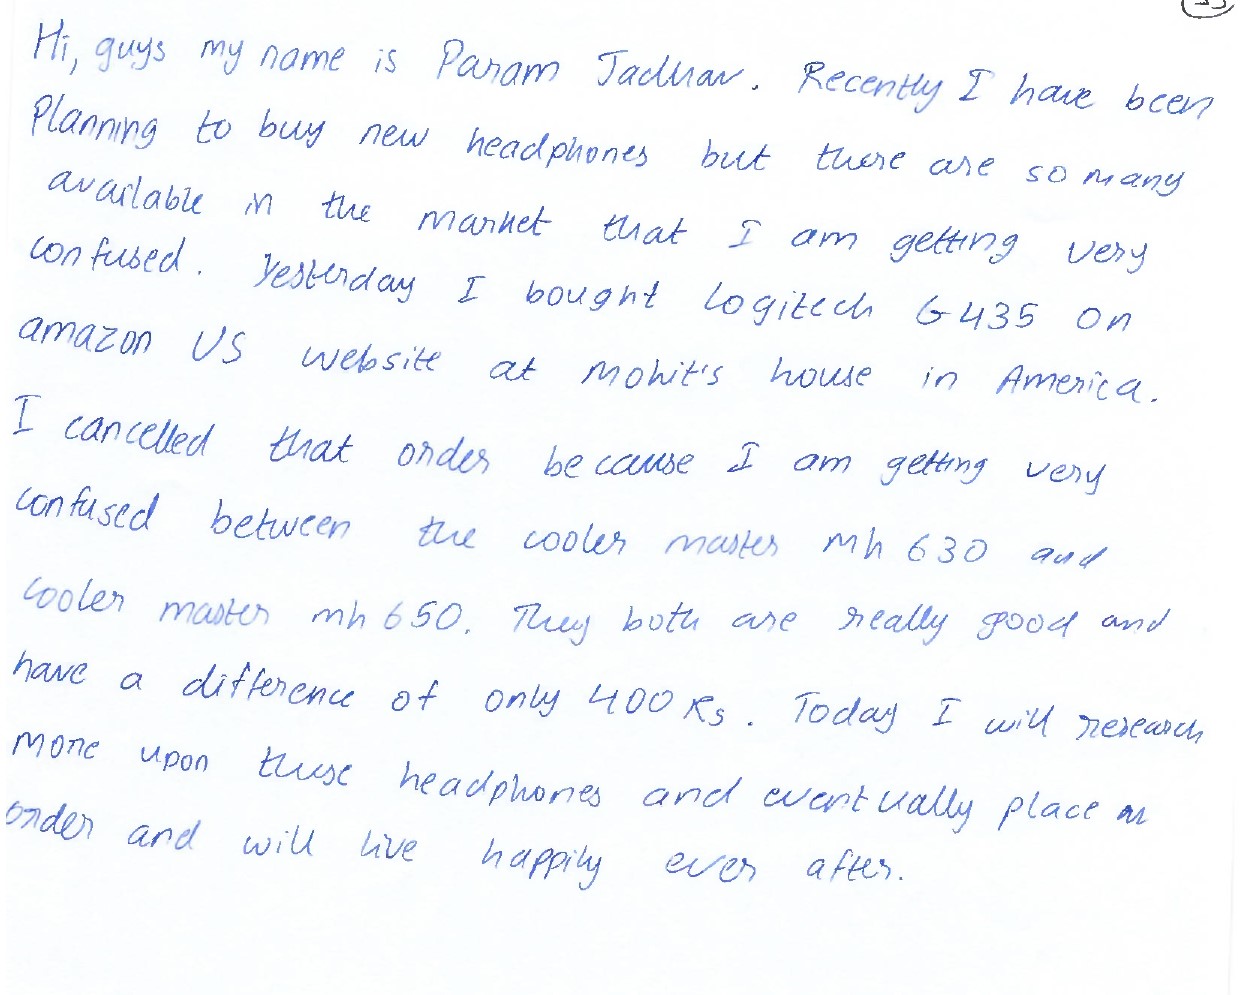 Hi, guys my name is Param Jadhav. Recently I have been
Planning to buy new headphones but there are so many
available in the market that I am getting very
confused. Yesterday I bought Logitech G435 on
amazon US website at Mohit's house in America.
I cancelled that order because I am getting very
confused between the cooler master mh 630 and
cooler master mh 650. They both are really good and
have a difference of only 400 Rs. Today I will research
more upon these headphones and eventually place an
order and will live happily ever after.